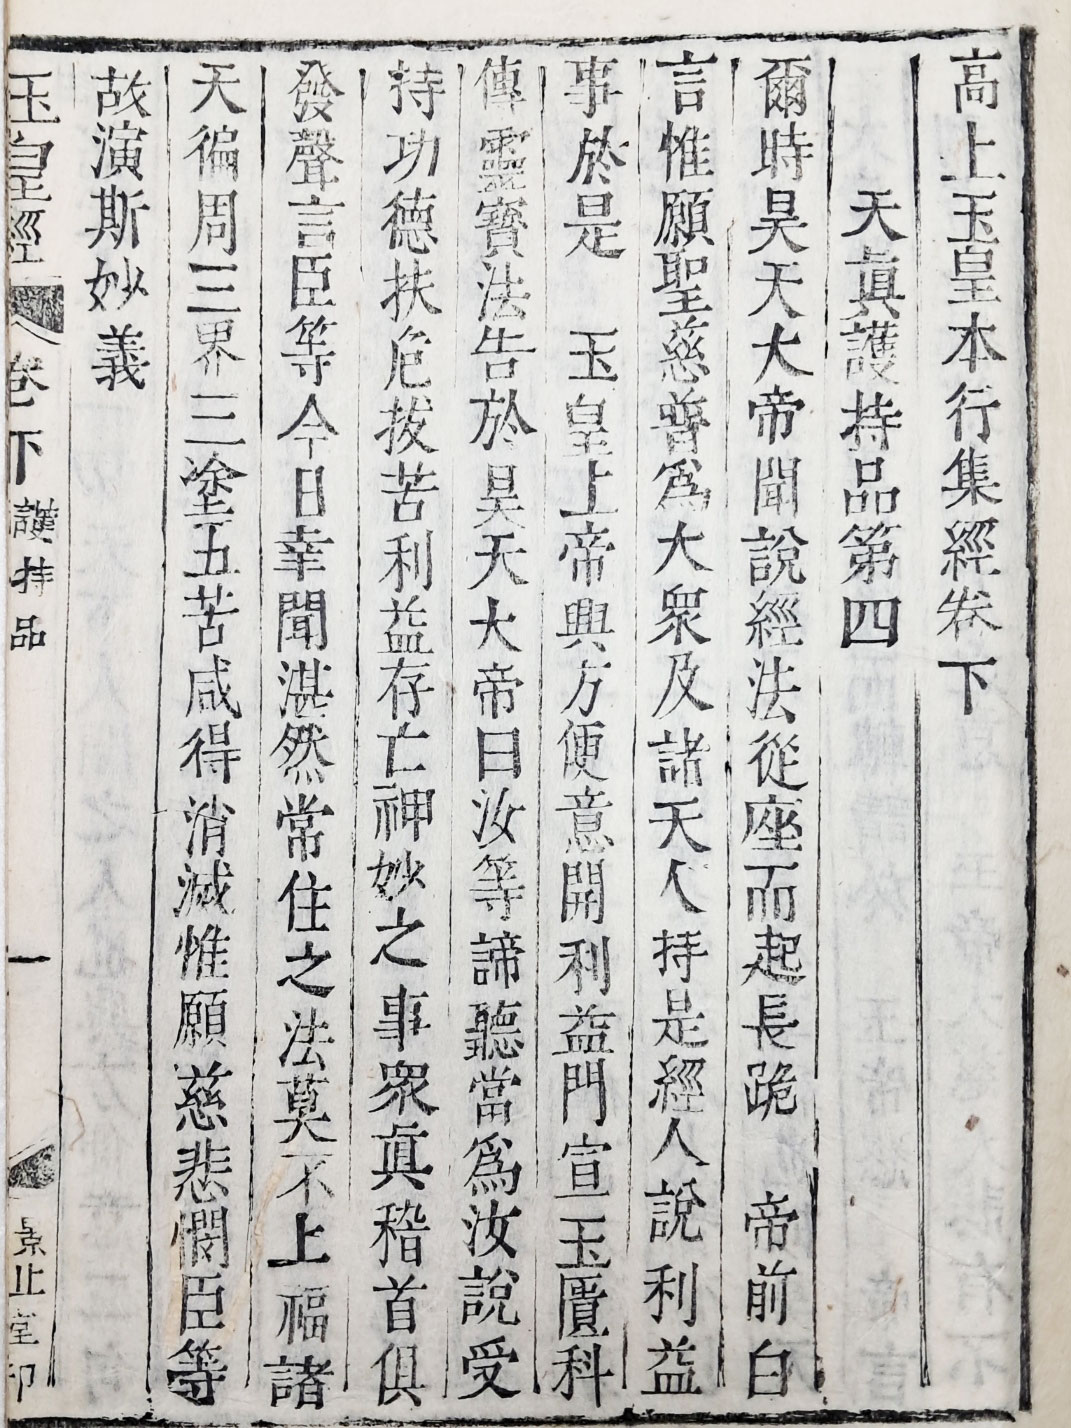 高上玉皇本行集經卷下
天眞護持品第四
爾時昊天大帝聞說經法從座而起長跪　帝前白
言惟願聖慈普爲大衆及諸天人持是經人說利益
事於是　玉皇上帝興方便意開利益門宣玉匱科
傳靈寳法告於昊天大帝曰汝等諦聽當爲汝說受
持功德扶危拔苦利益存亡神妙之事衆眞稽首俱
發聲言臣等今日幸聞湛然常住之法莫不上福諸
天徧周三界三塗五苦咸得消滅惟願慈悲憫臣等
故演斯妙義
玉皇經　卷下　護持品　一　景止堂印